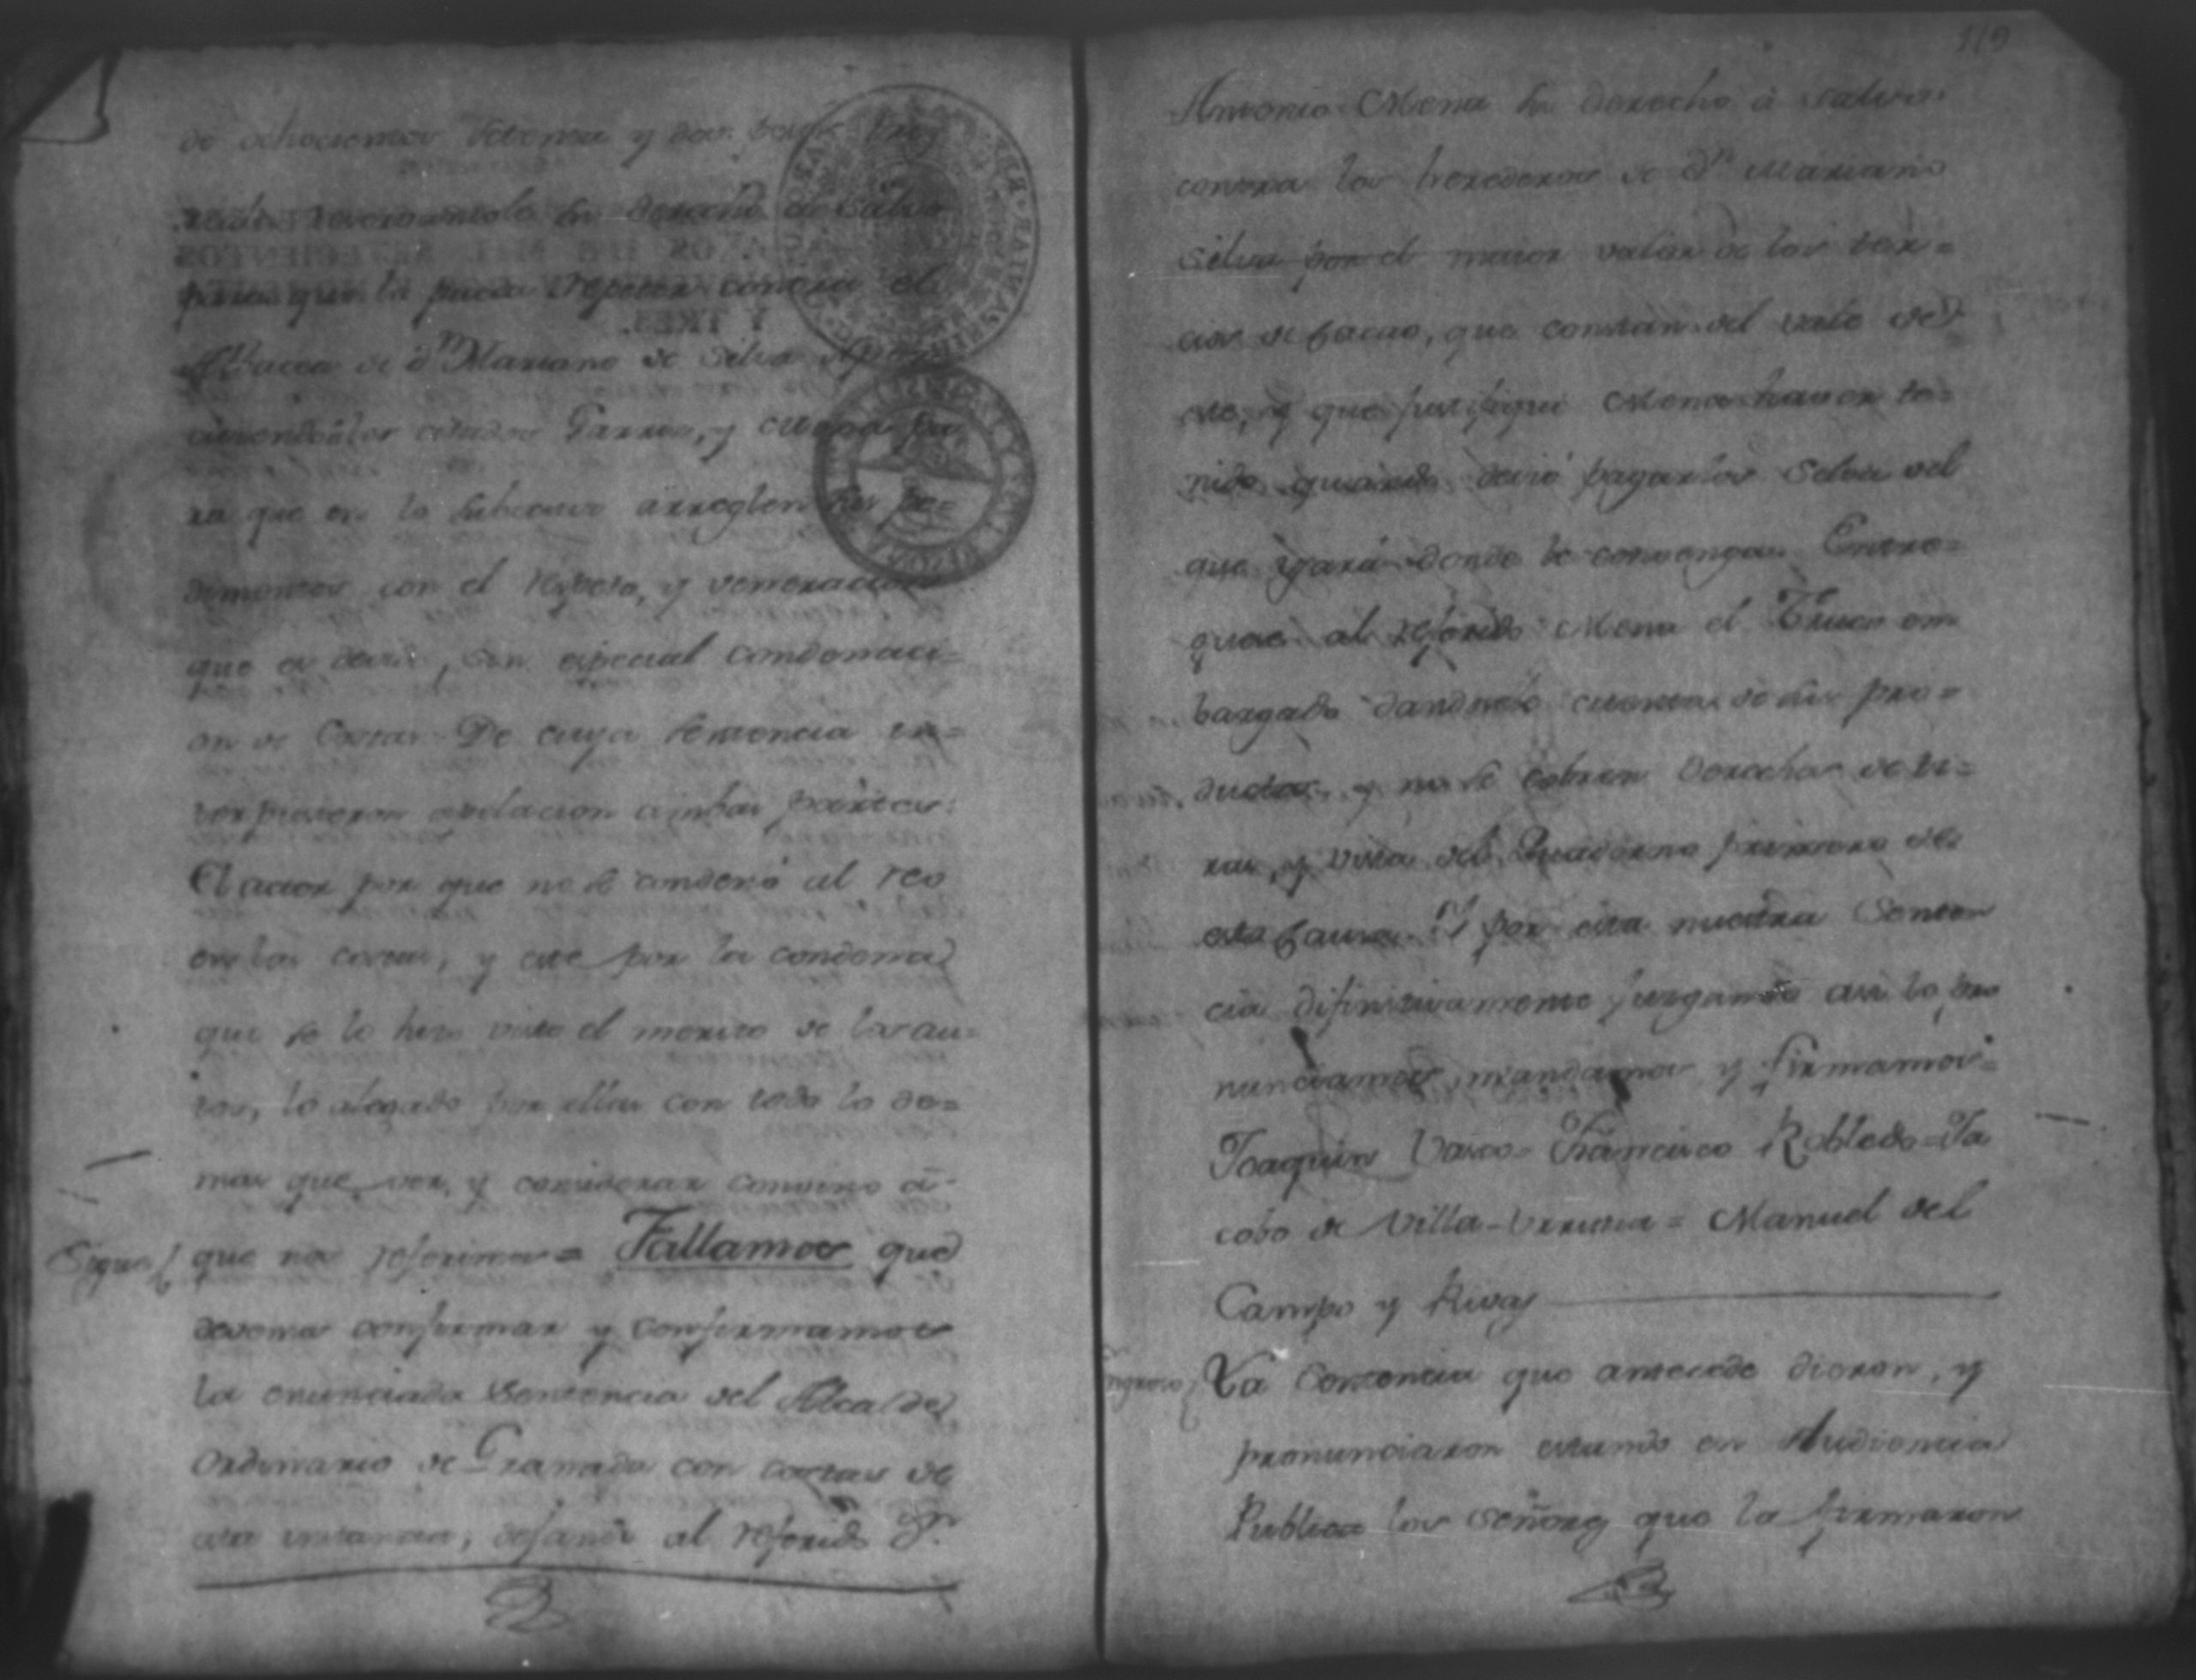 de ochocientos setenta y dos pesos tres
reales reservandole su derecho à salvo
para que la pueda repetir contra el
Albacea de Dn Mariano de Silva
a los citados Parres, y
ra que en lo subcesivo arreglen sus pe=
dimentos con el respeto, y veneracion
que es devida, sin especial condenaci=
on de Costas. De cuya sentencia in=
terpusieron apelacion ambas partes:
El actor por que no se condenó al reo
en las costas, y este por la condena
que se le hizo visto el merito de los au=
tos, lo alegado por ellas con todo lo de=
mas que ver, y considerar convino à
Sigue que nos referimos = Fallamos que
devemos confirmar y confirmamos
la enunciada Sentencia del Alcalde
Ordinario de Granada con costas de
esta instancia, dejando al referido Dn.
119
Antonio Mena su derecho à salvo
contra los herederos de Dn Mariano
Silva por el maior valor de los ter=
cios de Cacao, que constan del vale de
este, y que justifique Mena haver te=
nido quando devió pagarlos Silva del
que usará donde le convenga. Entre=
guese al referido Mena el Trucco em
bargado dandosele cuenta de sus pro=
ductos, y no se cobren Derechos de ti=
ras, y vista del Quaderno primero de
esta Causa. Y por esta nuestra Senten
cia difinitivamente juzgando assi lo pro
nunciamos, mandamos y firmamos=
Joaquin Vasco= Francisco Robledo= Ja
cobo de Villa-Urrutia= Manuel del
Campo y Rivas
La Sentencia que antecede dieron, y
pronunciaron estando en Audiencia
Publica los Señores que la firmaron